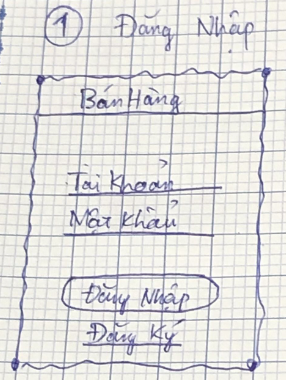 1 Đăng Nhập
Bán Hàng
Tài Khoản
Mật Khẩu
Đăng Nhập
Đăng Ký